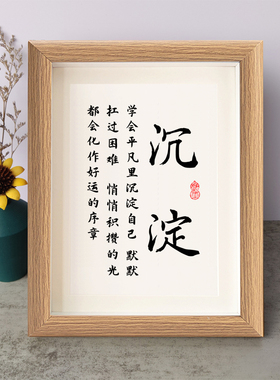 沉淀
学会平凡里沉淀自己 默默
扛过困难 悄悄积攒的光
都会化作好运的序章